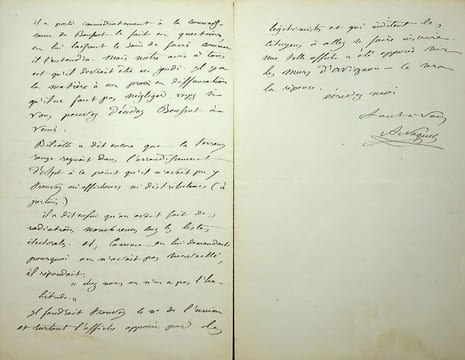 il a porté immédiatement à la connaiss-
ance de Bonfort le fait en question
en lui laissant le soin de faire comme
il l'entendra. Mais notre avis à tous
est qu'il devrait être
la matière à un procès en diffamation
qu'il ne faut pas négliger.
vous pouvez décider Bonfort à
vous.
a dit encore que la terreur
rouge régnait dans l'arrondissement
d'Apt à le point qu'il n'avait pu y
trouver ni afficheurs ni distributeurs (à
il a dit enfin qu'on avait fait des
radiations nombreuses sur les listes
électorales. et, comme on lui demandait
pourquoi on n'avait pas
il répondait:
"chez nous on n'en a pas l'ha-
bitude."
il faudrait trouver le no de l'union
et surtout l'affiche apposée par les
légitimistes et qui invitent les
citoyens à aller se faire inscrire.
une telle affiche a été apposée sur
les murs d'avignon -
la réponse.
moi
tout à vous
A Naquet